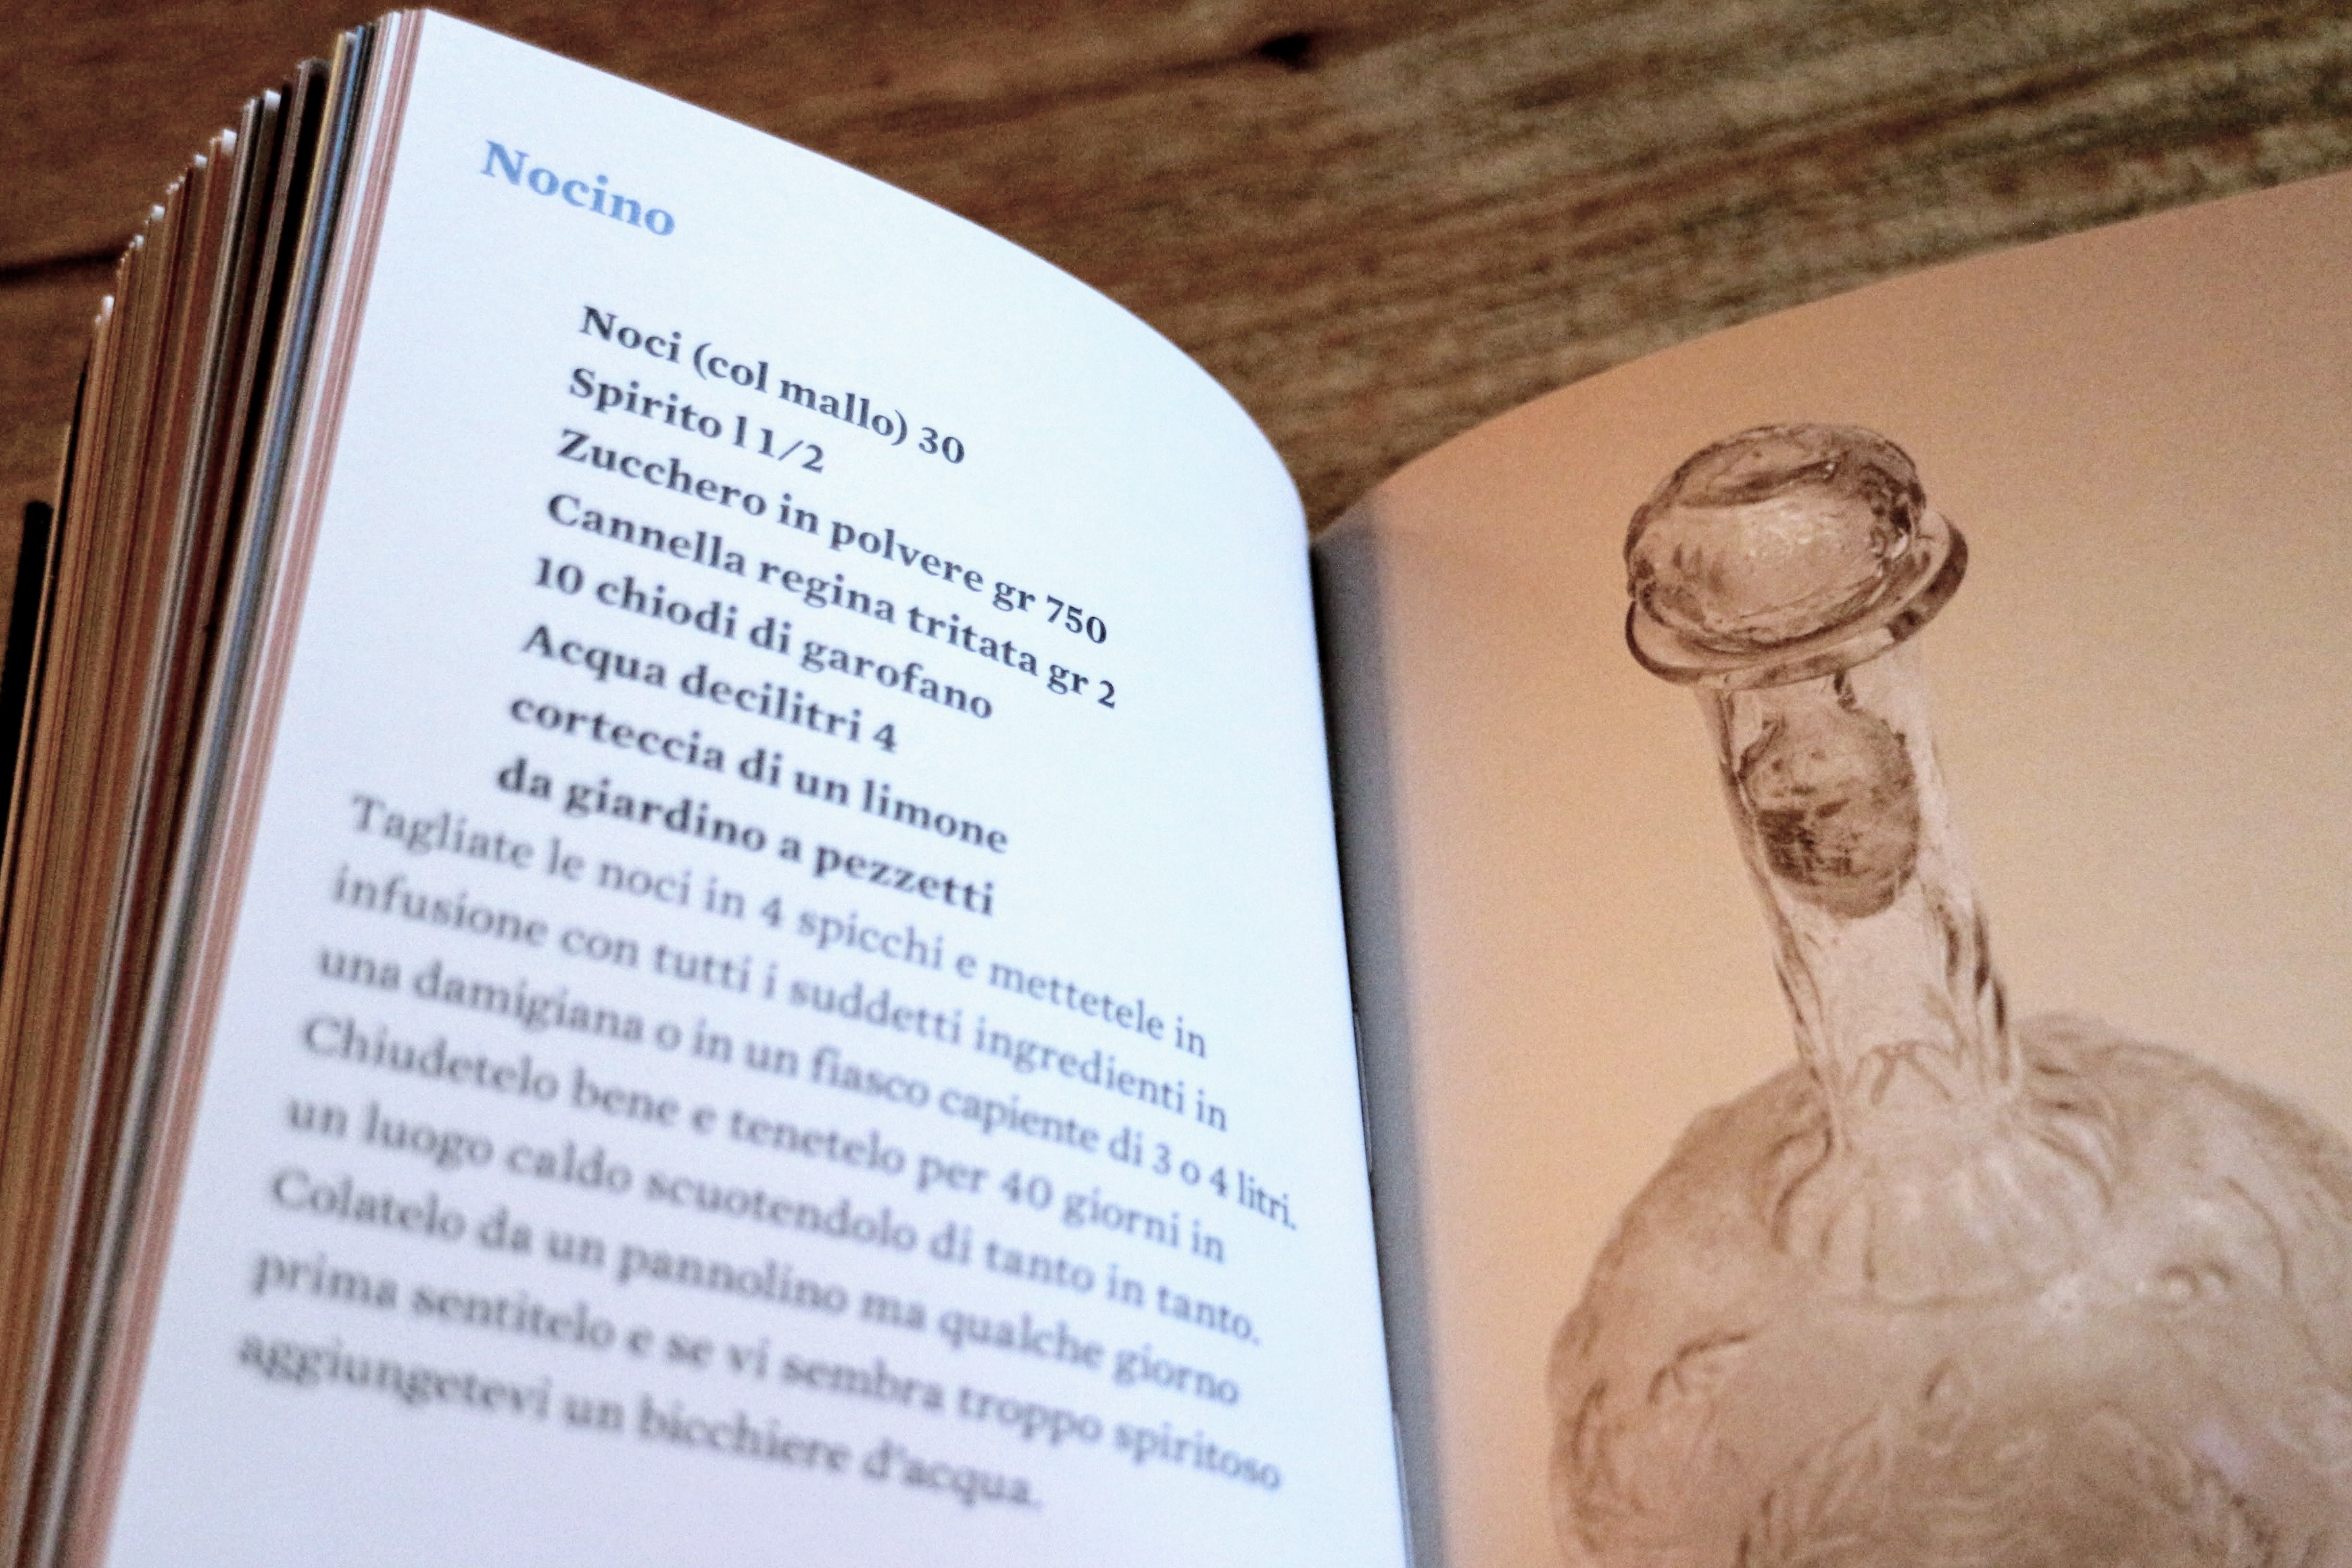 Nocino
Noci (col mallo) 30
Spirito l 1/2
Zucchero in polvere gr 750
Cannella regina tritata gr 2
10 chiodi di garofano
Acqua decilitri 4
corteccia di un limone
da giardino a pezzetti
Tagliate le noci in 4 spicchi e mettetele in
infusione con tutti i suddetti ingredienti in
una damigiana o in un fiasco capiente di 3 o 4 litri.
Chiudetelo bene e tenetelo per 40 giorni in
un luogo caldo scuotendolo di tanto in tanto.
Colatelo da un pannolino ma qualche giorno
prima sentitelo e se vi sembra troppo spiritoso
aggiungetevi un bicchiere d'acqua.